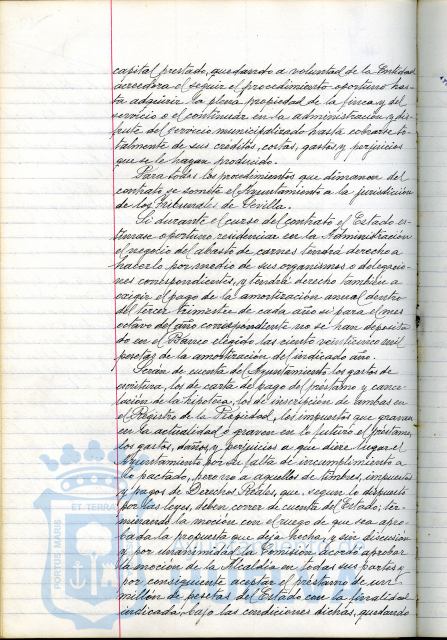 capital prestado, quedando a voluntad de la Entidad
acreedora el seguir el procedimiento oportuno has-
ta adquirir la plena propiedad de la finca y del
servicio o el continuar en la administración y dis-
frute del servicio municipalizado hasta cobrarse to-
talmente de sus créditos, costas, gastos y perjuicios
que se le hayan producido.
Para todos los procedimientos que dimanen del
contrato se somete el Ayuntamiento a la jurisdicción
de los tribunales de Sevilla.
Si durante el curso del contrato el Estado es-
timase oportuno residenciar en la Administración
el negocio del abasto de carnes tendrá derecho a
hacerlo por medio de sus organismos o delegacio-
nes correspondientes, y tendrá derecho también a
exigir el pago de la amortización anual dentro
del tercer trimestre de cada año si para el mes
octavo del año correspondiente no se han deposita-
do en el Banco elegido las ciento veinticinco mil
pesetas de la amortización del indicado año.
Serán de cuenta del Ayuntamiento los gastos de
escritura, los de carta de pago del préstamo y cance-
lación de la hipoteca, los de inscripción de ambas en
el Registro de la Propiedad, los impuestos que graven
en la actualidad o graven en lo futuro el préstamo,
los gastos, daños y perjuicios a que diere lugar el
Ayuntamiento por su falta de incumplimiento a
lo pactado, pero no a aquellos de timbres, impuestos
y pagos de Derechos Reales, que según lo dispuesto
por las leyes, deben correr de cuenta del Estado; ter-
minando la moción con el ruego de que sea apro-
bada la propuesta que deja hecha, y sin discusión
y por unanimidad la Comisión acordó aprobar
la moción de la Alcaldía en todas sus partes y
por consiguiente aceptar el préstamo de un
millón de pesetas del Estado con la finalidad
indicada, bajo las condiciones dichas, quedando
ET TERRA
PORTUS MARIS